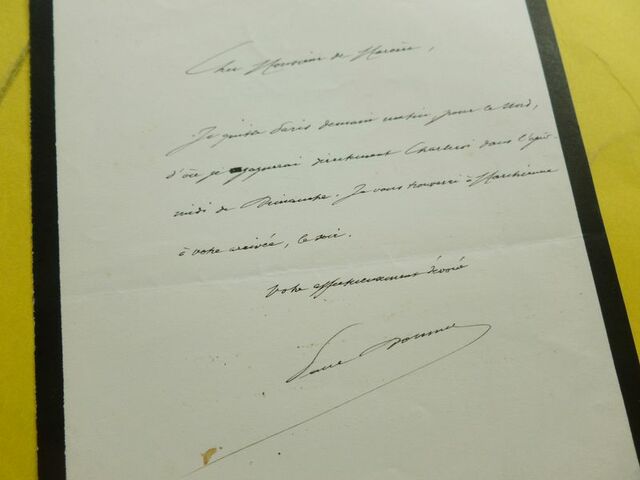 Cher Monsieur de Marcère,
Je quitte Paris demain matin, pour le Nord,
d'où je gagnerai directement Charleroi dans l'après-
midi de Dimanche. Je vous trouverai à Marchienne
à votre arrivée, le soir.
Votre affectueusement dévoué
Paul Doumer